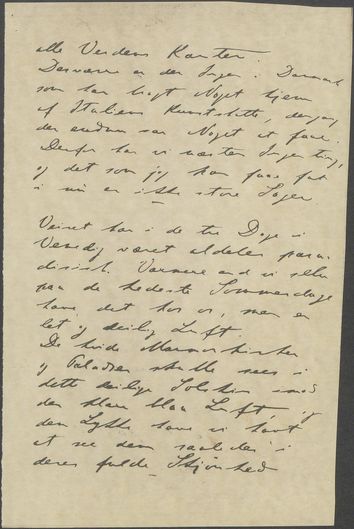 alle Verdens Kanter.
Desværre er der Ingen i Danmark
som har bragt Noget hjem
af Italiens Kunstskatte, dengang
der endnu var Noget at faae.
Derfor har vi næsten Ingenting,
og det som jeg kan faae fat
i nu er ikke store Sager.
Veiret har i de tre Dage i
Venedig været aldeles para-
disisk. Varmere end vi selv
paa de hedeste Sommerdage
have det hos os, men en
let og deilig Luft.
De hvide Marmorkirker
og Paladser skulle sees i
dette deilige Solskin mod
den klare blaa Luft, og
den Lykke have vi havt
at see dem saaledes i
deres fulde Skjønhed